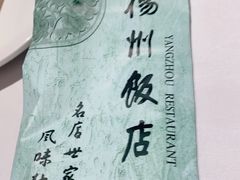 揚州飯店
YANGZHOU RESTAURANT
名店世家
風味